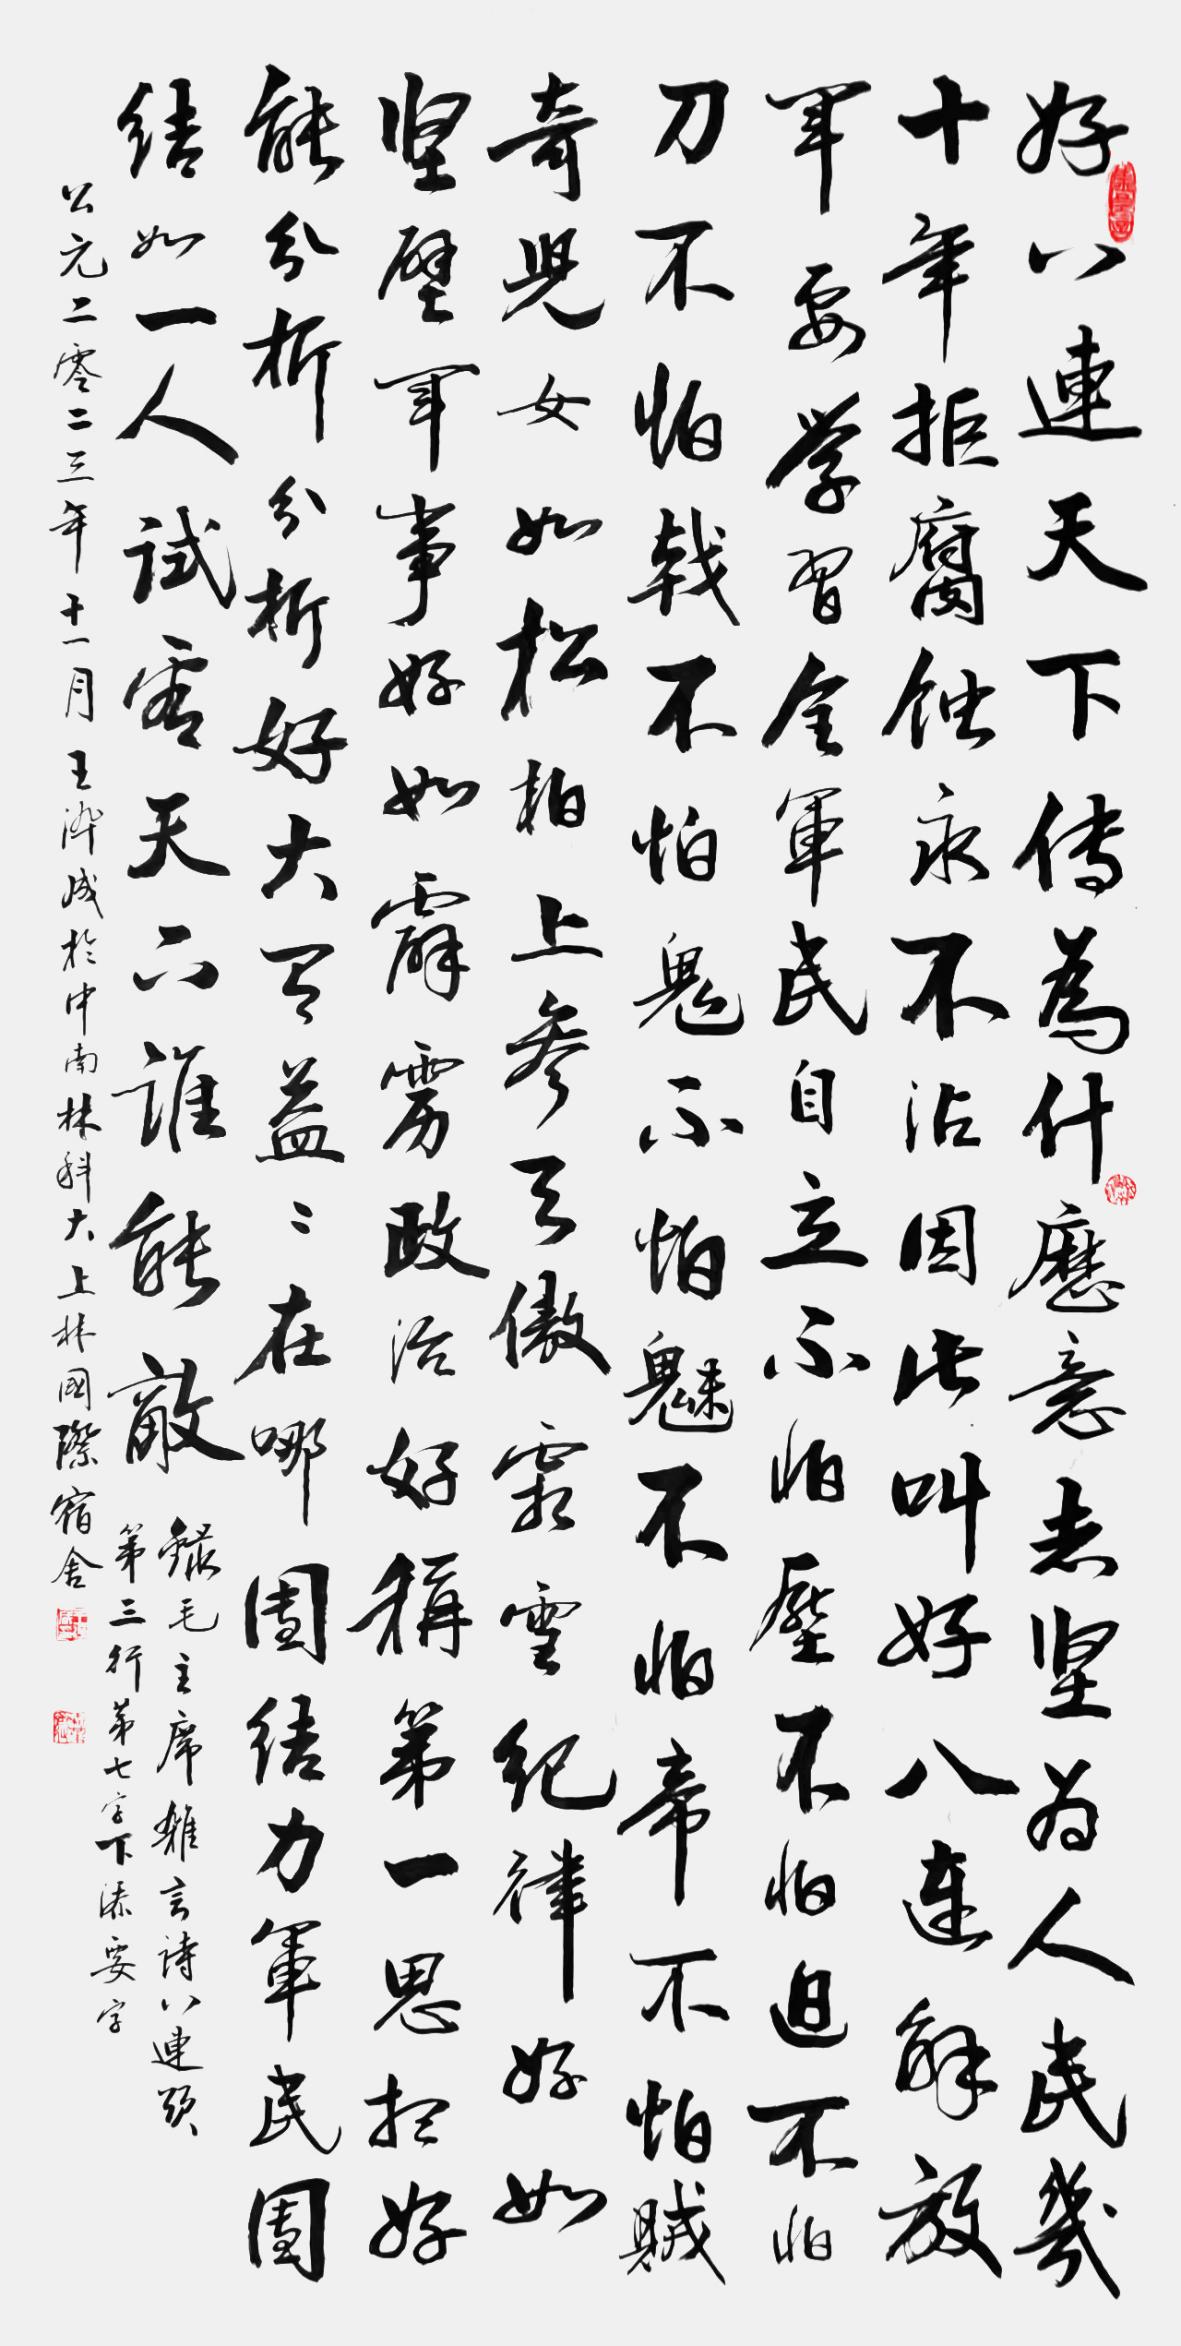 好八連天下传為什麽意志坚为人民幾
十年拒腐蚀永不沾因此叫好八连解放
军要学習全軍民自立不怕壓不怕迫不怕
刀不怕戟不怕鬼不怕魅不怕帝不怕贼
奇児女如松柏上参天傲霜雪纪律好如
坚壁军事好如霹雳政治好稱第一思想好
能分析分析好大有益〻在哪团结力軍民团
结如一人试看天下谁能敵
錄毛主席雜言詩八連頌
第三行第七字下漆要字
公元二零二三年十一月王澤成於中南林科大上林國際宿舍